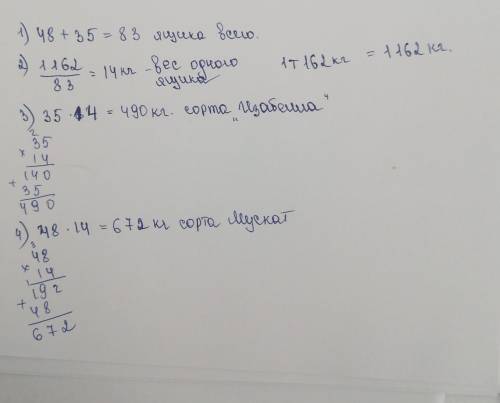 1) 48 + 35 = 83 ящика всего.
2) 1162 / 83 = 14 кг - вес одного ящика
1т 162 кг = 1162 кг.
3) 35 · 14 = 490 кг. сорта „Изабелла"
2
35
× 14
140
+ 35
490
4) 48 · 14 = 672 кг сорта Мускат
3
48
× 14
192
+ 48
672